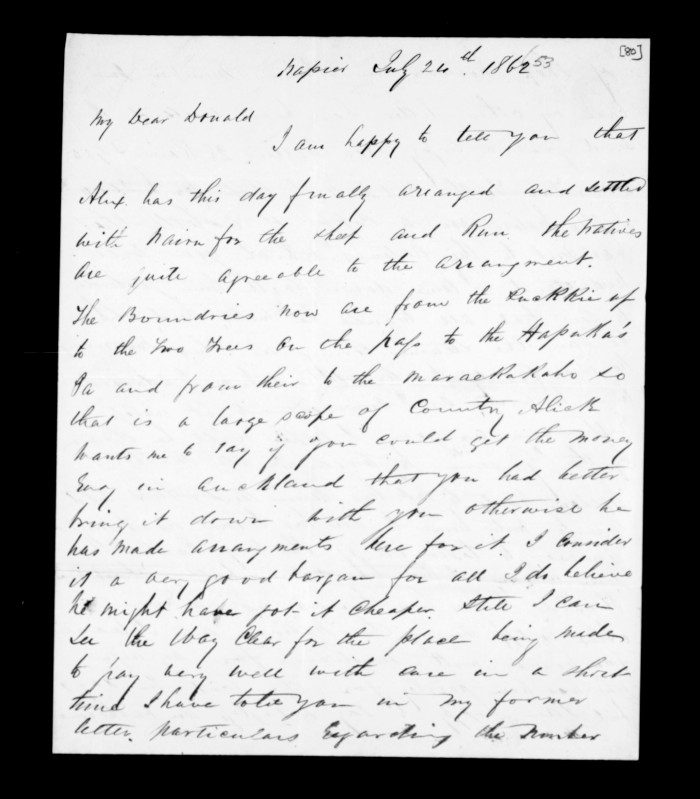 [80]
Napier July 24th. 1862 53
My Dear Donald
I am happy to tell you that
Alix has this day finally arranged and settled
with Nairn for the sheep and Run the Natives
are quite agreeable to the arrangment.
The Boundries now are from the Luckkie up
to the Two Trees on the pass to the Hapuka's
Pa and from their to the Maraekakaho so
that is a large scope of Country Alick
wants me to say if you could get the money
Easy in auckland that you had better
bring it down with you otherwise he
has made arrangments here for it I consider
it a very good bargan for all I do believe
he might have got it cheaper. Still I can
see the Way Clear for the place being made
to pay very well with care in a short
time I have told you in my former
letter. particulars Regarding the Number